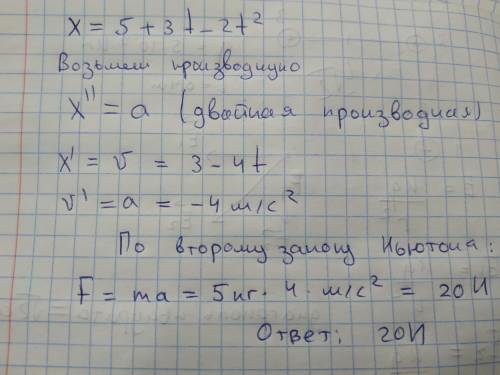 x = 5 + 3t - 2t²
Возьмем производную
x'' = a (двойная производная)
x' = v = 3 - 4t
v' = a = -4 м/с²
По второму закону Ньютона:
F = ma = 5кг · 4 · м/с² = 20Н
Ответ: 20Н